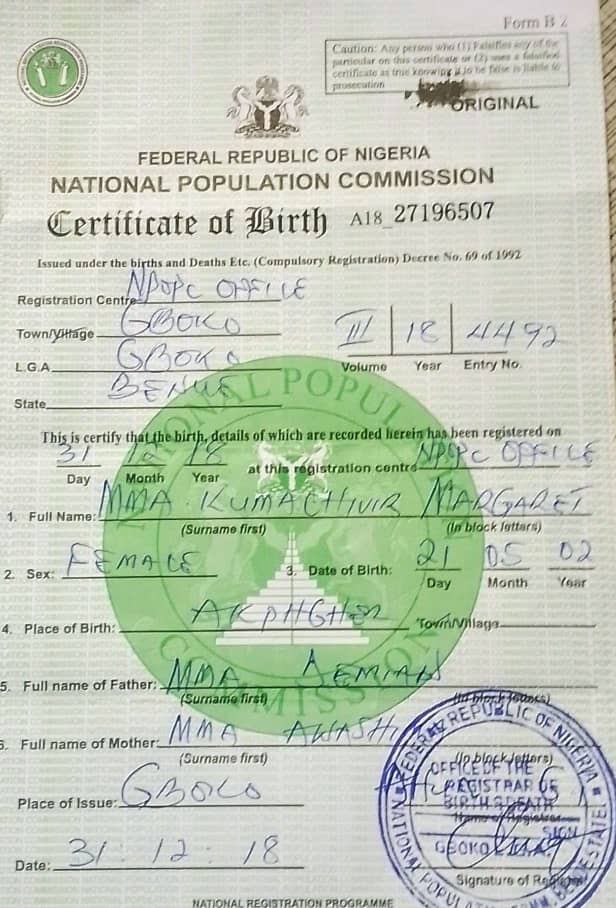 Form B 2
Caution: Any person who (1) Falsifies any of the
particular on this certificate or (2) uses a falsified
certificate as true knowing it to be false is liable to
prosecution
ORIGINAL
FEDERAL REPUBLIC OF NIGERIA
NATIONAL POPULATION COMMISSION
Certificate of Birth A18_27196507
Issued under the births and Deaths Etc. (Compulsory Registration) Decree No. 69 of 1992
Registration Centre NPOPC OFFICE
Town/Village GBOKO
III 18 4492
L.G.A GBOKO
Volume Year Entry No.
State BENUE
This is certify that the birth, details of which are recorded herein has been registered on
31 12 18 at this registration centre NPOPC OFFICE
Day Month Year
1. Full Name: MMA KUMACHIVIR MARGARET
(Surname first) (In block letters)
2. Sex: FEMALE 3. Date of Birth: 21 05 02
Day Month Year
4. Place of Birth: Town/Village
5. Full name of Father: MMA
(Surname first) (In block letters)
6. Full name of Mother: MMA AWASHI
(Surname first) (In block letters)
Place of Issue: GBOKO
Name of Registrar
Date: 31:12:18
Signature of Registrar
NATIONAL REGISTRATION PROGRAMME
NATIONAL POPULATION COMMISSION
FEDERAL REPUBLIC OF NIGERIA
OFFICE OF THE
REGISTRAR OF
BIRTH & DEATH
SIGN
GBOKO